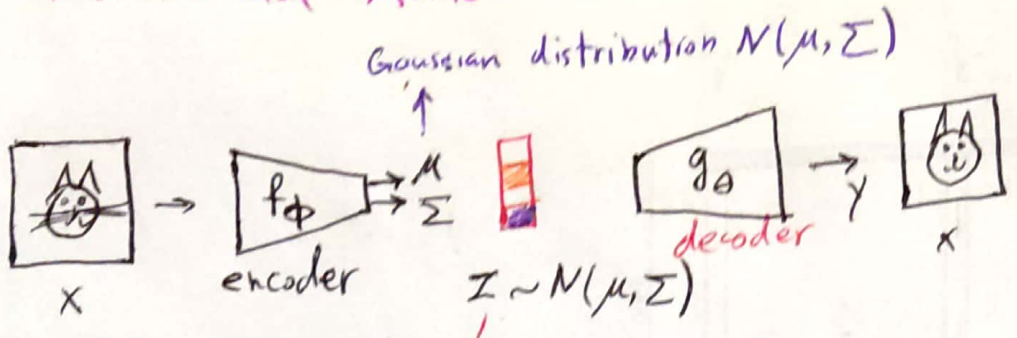 Gaussian distribution N(μ, Σ)
f_ϕ
μ
Σ
g_θ
y
encoder
decoder
x
x
z ~ N(μ, Σ)